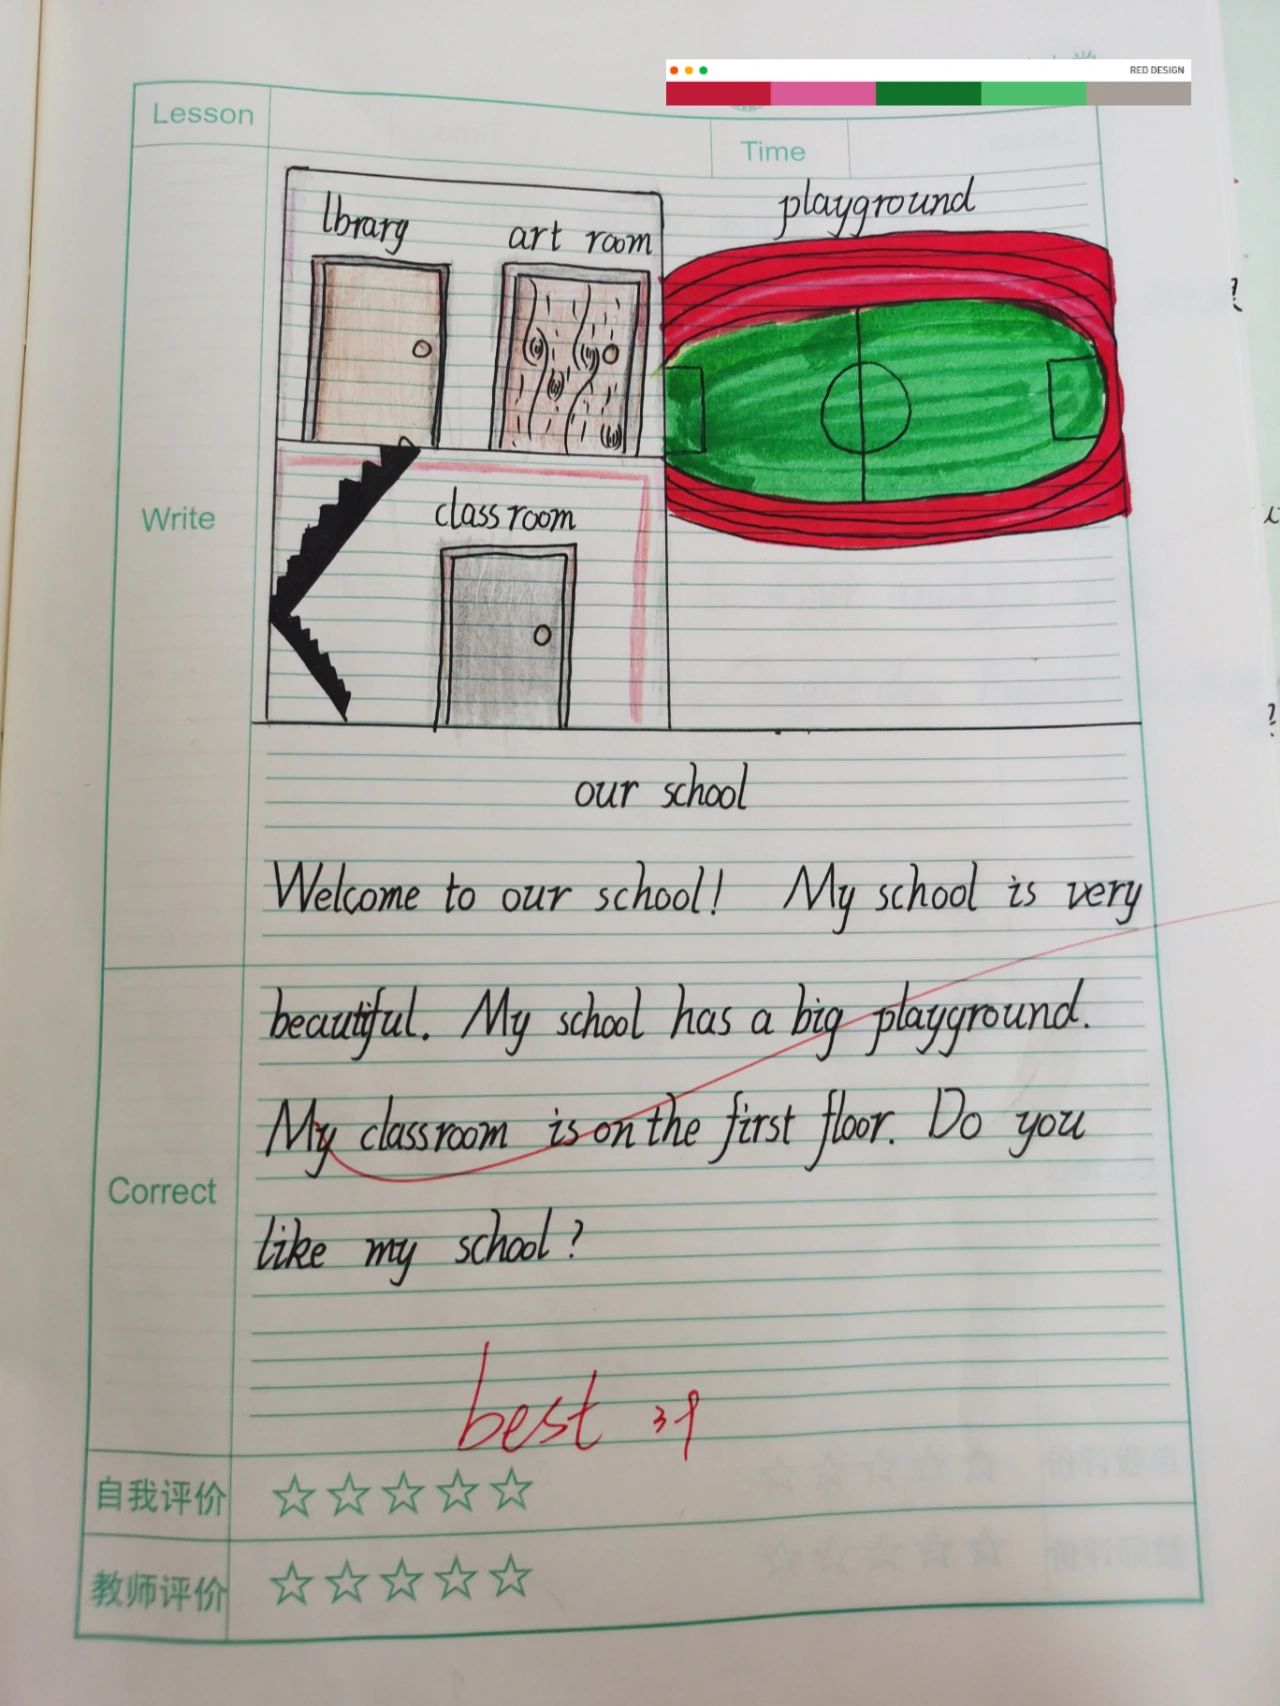 RED DESIGN
Lesson
Time
playground
lbrary
art room
classroom
Write
our school
Welcome to our school! My school is very
beautiful. My school has a big playground.
My classroom is on the first floor. Do you
Correct
like my school?
best
自我评价
教师评价